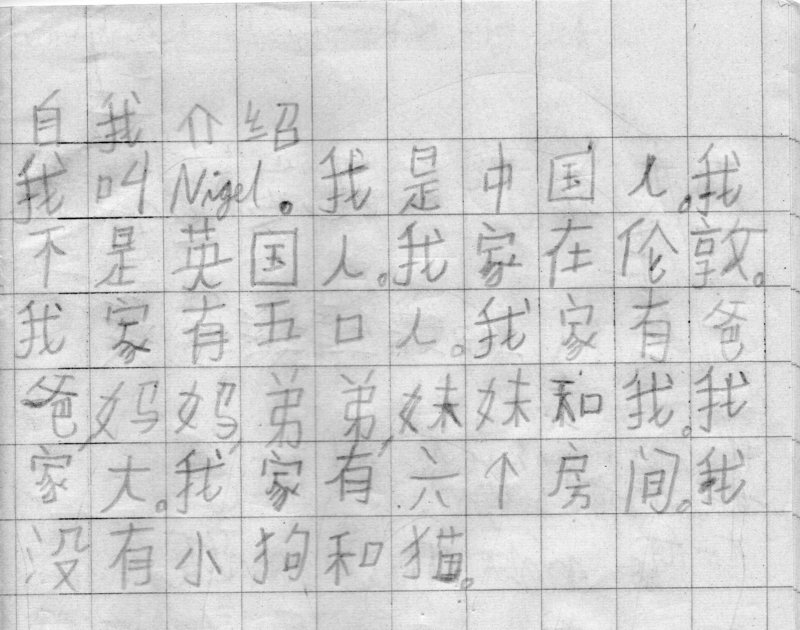 自我介绍
我叫Nigel。我是中国人。我
不是英国人。我家在伦敦。
我家有五口人。我家有爸
爸,妈妈,弟弟,妹妹和我。我
家大。我家有六个房间。我
没有小狗和猫。